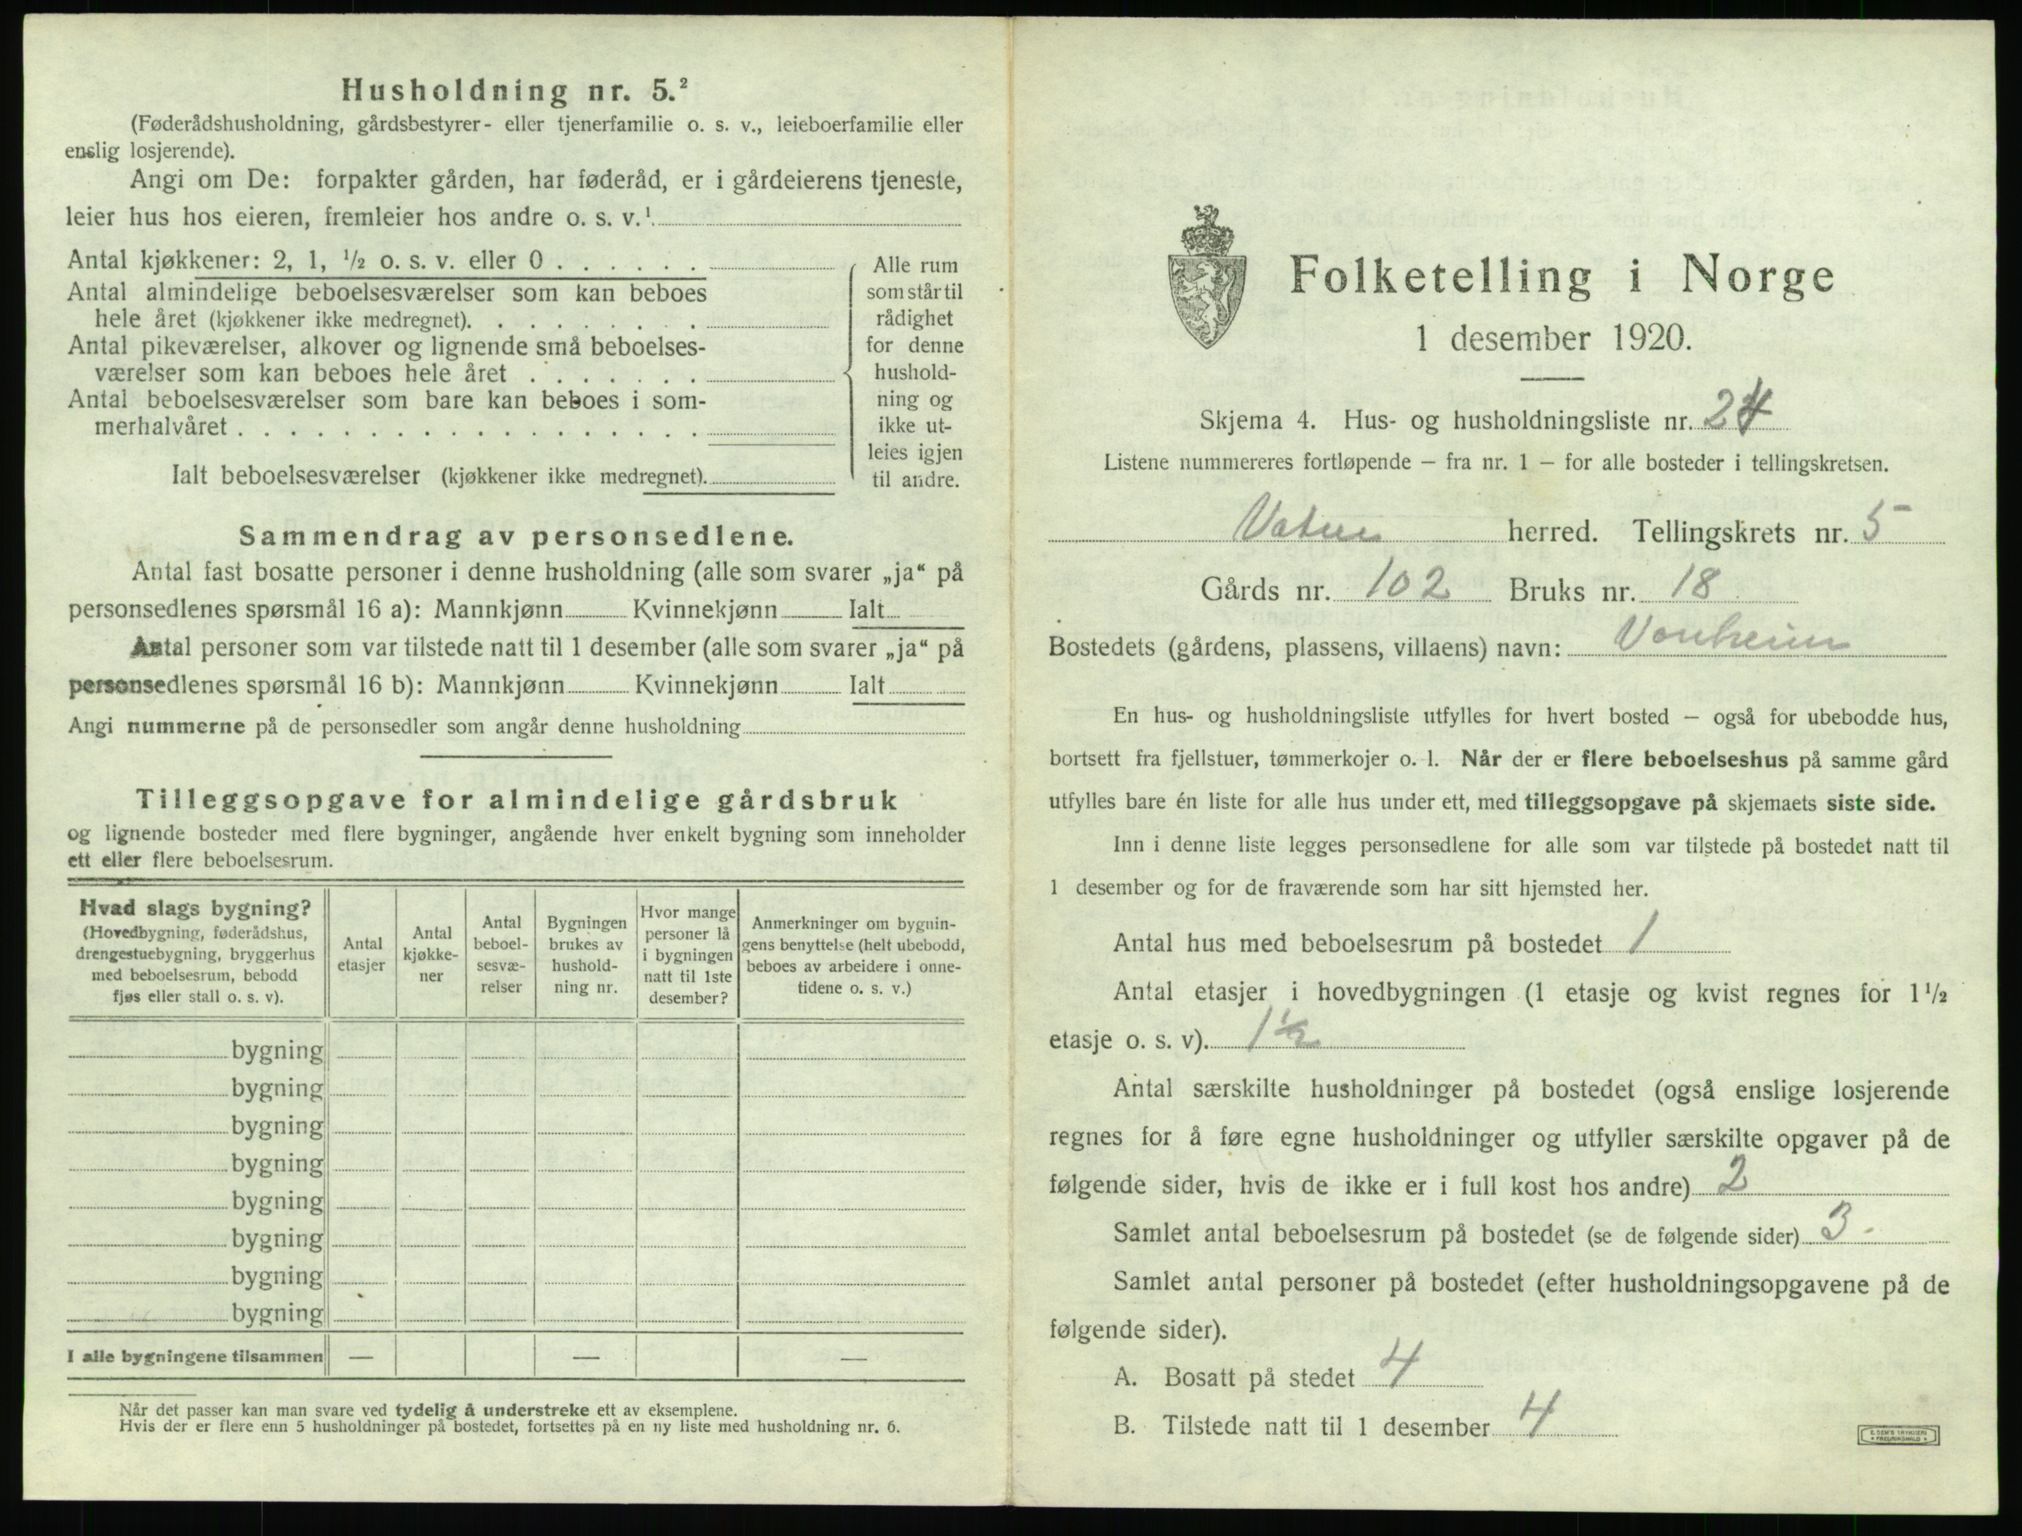 Husholdning nr. 5.²
(Føderådshusholdning, gårdsbestyrer- eller tjenerfamilie o. s. v., leieboerfamilie eller
enslig losjerende).
Angi om De: forpakter gården, har føderåd, er i gårdeierens tjeneste,
leier hus hos eieren, fremleier hos andre o. s. v.¹
Antal kjøkkener: 2, 1, ½ o. s. v. eller 0 . . . . . .
Antal almindelige beboelsesværelser som kan beboes
hele året (kjøkkener ikke medregnet). . . . . . . . .
Antal pikeværelser, alkover og lignende små beboelses-
værelser som kan beboes hele året . . . . . . .
Antal beboelsesværelser som bare kan beboes i som-
merhalvåret . . . . . . . . . . . . . . . . . .
Ialt beboelsesværelser (kjøkkener ikke medregnet).
Alle rum
som står til
rådighet
for denne
hushold-
ning og
ikke ut-
leies igjen
til andre.
Sammendrag av personsedlene.
Antal fast bosatte personer i denne husholdning (alle som svarer „ja“ på
personsedlenes spørsmål 16 a): Mannkjønn Kvinnekjønn Ialt
Antal personer som var tilstede natt til 1 desember (alle som svarer „ja“ på
personsedlenes spørsmål 16 b): Mannkjønn Kvinnekjønn Ialt
Angi nummerne på de personsedler som angår denne husholdning
Tilleggsopgave for almindelige gårdsbruk
og lignende bosteder med flere bygninger, angående hver enkelt bygning som inneholder
ett eller flere beboelsesrum.
Hvad slags bygning?
(Hovedbygning, føderådshus,
drengestuebygning, bryggerhus
med beboelsesrum, bebodd
fjøs eller stall o. s. v).
Antal
etasjer
Antal
kjøkke-
ner
Antal
beboel-
sesvæ-
relser
Bygningen
brukes av
hushold-
ning nr.
Hvor mange
personer lå
i bygningen
natt til 1ste
desember?
Anmerkninger om bygnin-
gens benyttelse (helt ubebodd,
beboes av arbeidere i onne-
tidene o. s. v.)
bygning
bygning
bygning
bygning
bygning
bygning
bygning
bygning
I alle bygningene tilsammen — — —
Når det passer kan man svare ved tydelig å understreke ett av eksemplene.
Hvis der er flere enn 5 husholdninger på bostedet, fortsettes på en ny liste med husholdning nr. 6.
Folketelling i Norge
1 desember 1920.
Skjema 4. Hus- og husholdningsliste nr. 24
Listene nummereres fortløpende – fra nr. 1 – for alle bosteder i tellingskretsen.
Vatne herred. Tellingskrets nr. 5
Gårds nr. 102 Bruks nr. 18
Bostedets (gårdens, plassens, villaens) navn: Vonheim
En hus- og husholdningsliste utfylles for hvert bosted – også for ubebodde hus,
bortsett fra fjellstuer, tømmerkojer o. l. Når der er flere beboelseshus på samme gård
utfylles bare én liste for alle hus under ett, med tilleggsopgave på skjemaets siste side.
Inn i denne liste legges personsedlene for alle som var tilstede på bostedet natt til
1 desember og for de fraværende som har sitt hjemsted her.
Antal hus med beboelsesrum på bostedet 1
Antal etasjer i hovedbygningen (1 etasje og kvist regnes for 1½
etasje o. s. v). 1½
Antal særskilte husholdninger på bostedet (også enslige losjerende
regnes for å føre egne husholdninger og utfyller særskilte opgaver på de
følgende sider, hvis de ikke er i full kost hos andre) 2
Samlet antal beboelsesrum på bostedet (se de følgende sider) 3.
Samlet antal personer på bostedet (efter husholdningsopgavene på de
følgende sider).
A. Bosatt på stedet 4
B. Tilstede natt til 1 desember 4